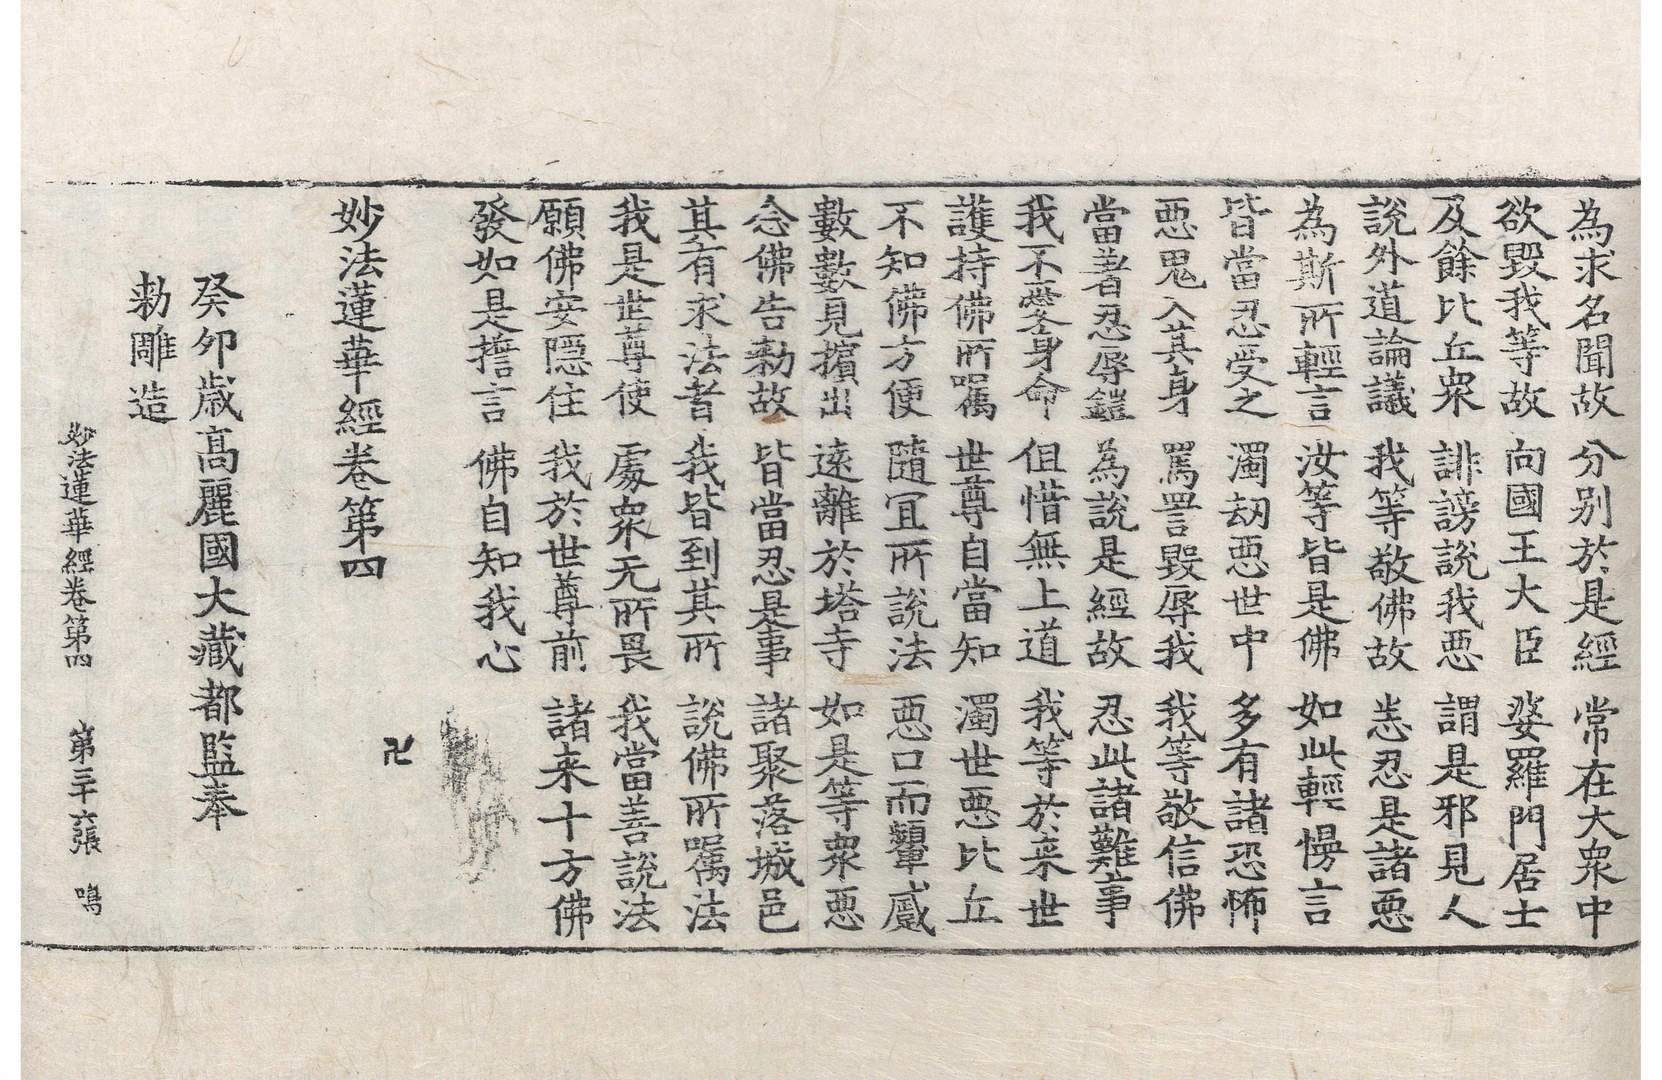 為求名聞故 分別於是經 常在大衆中
欲毀我等故 向國王大臣 婆羅門居士
及餘比丘衆 誹謗說我惡 謂是邪見人
說外道論議 我等敬佛故 悉忍是諸惡
為斯所輕言 汝等皆是佛 如此輕慢言
皆當忍受之 濁劫惡世中 多有諸恐怖
惡鬼入其身 罵詈毀辱我 我等敬信佛
當著忍辱鎧 為說是經故 忍此諸難事
我不愛身命 但惜無上道 我等於来世
護持佛所囑 世尊自當知 濁世惡比丘
不知佛方便 隨冝所說法 惡口而顰慼
數數見擯出 遠離於塔寺 如是等衆惡
念佛告勑故 皆當忍是事 諸聚落城邑
其有求法者 我皆到其所 說佛所囑法
我是世尊使 處衆无所畏 我當善說法
願佛安隱住 我於世尊前 諸来十方佛
發如是誓言 佛自知我心
妙法蓮華經卷第四
卍
癸卯歲高麗國大藏都監奉
勑雕造
妙法蓮華經卷第四 第三十六張 鳴